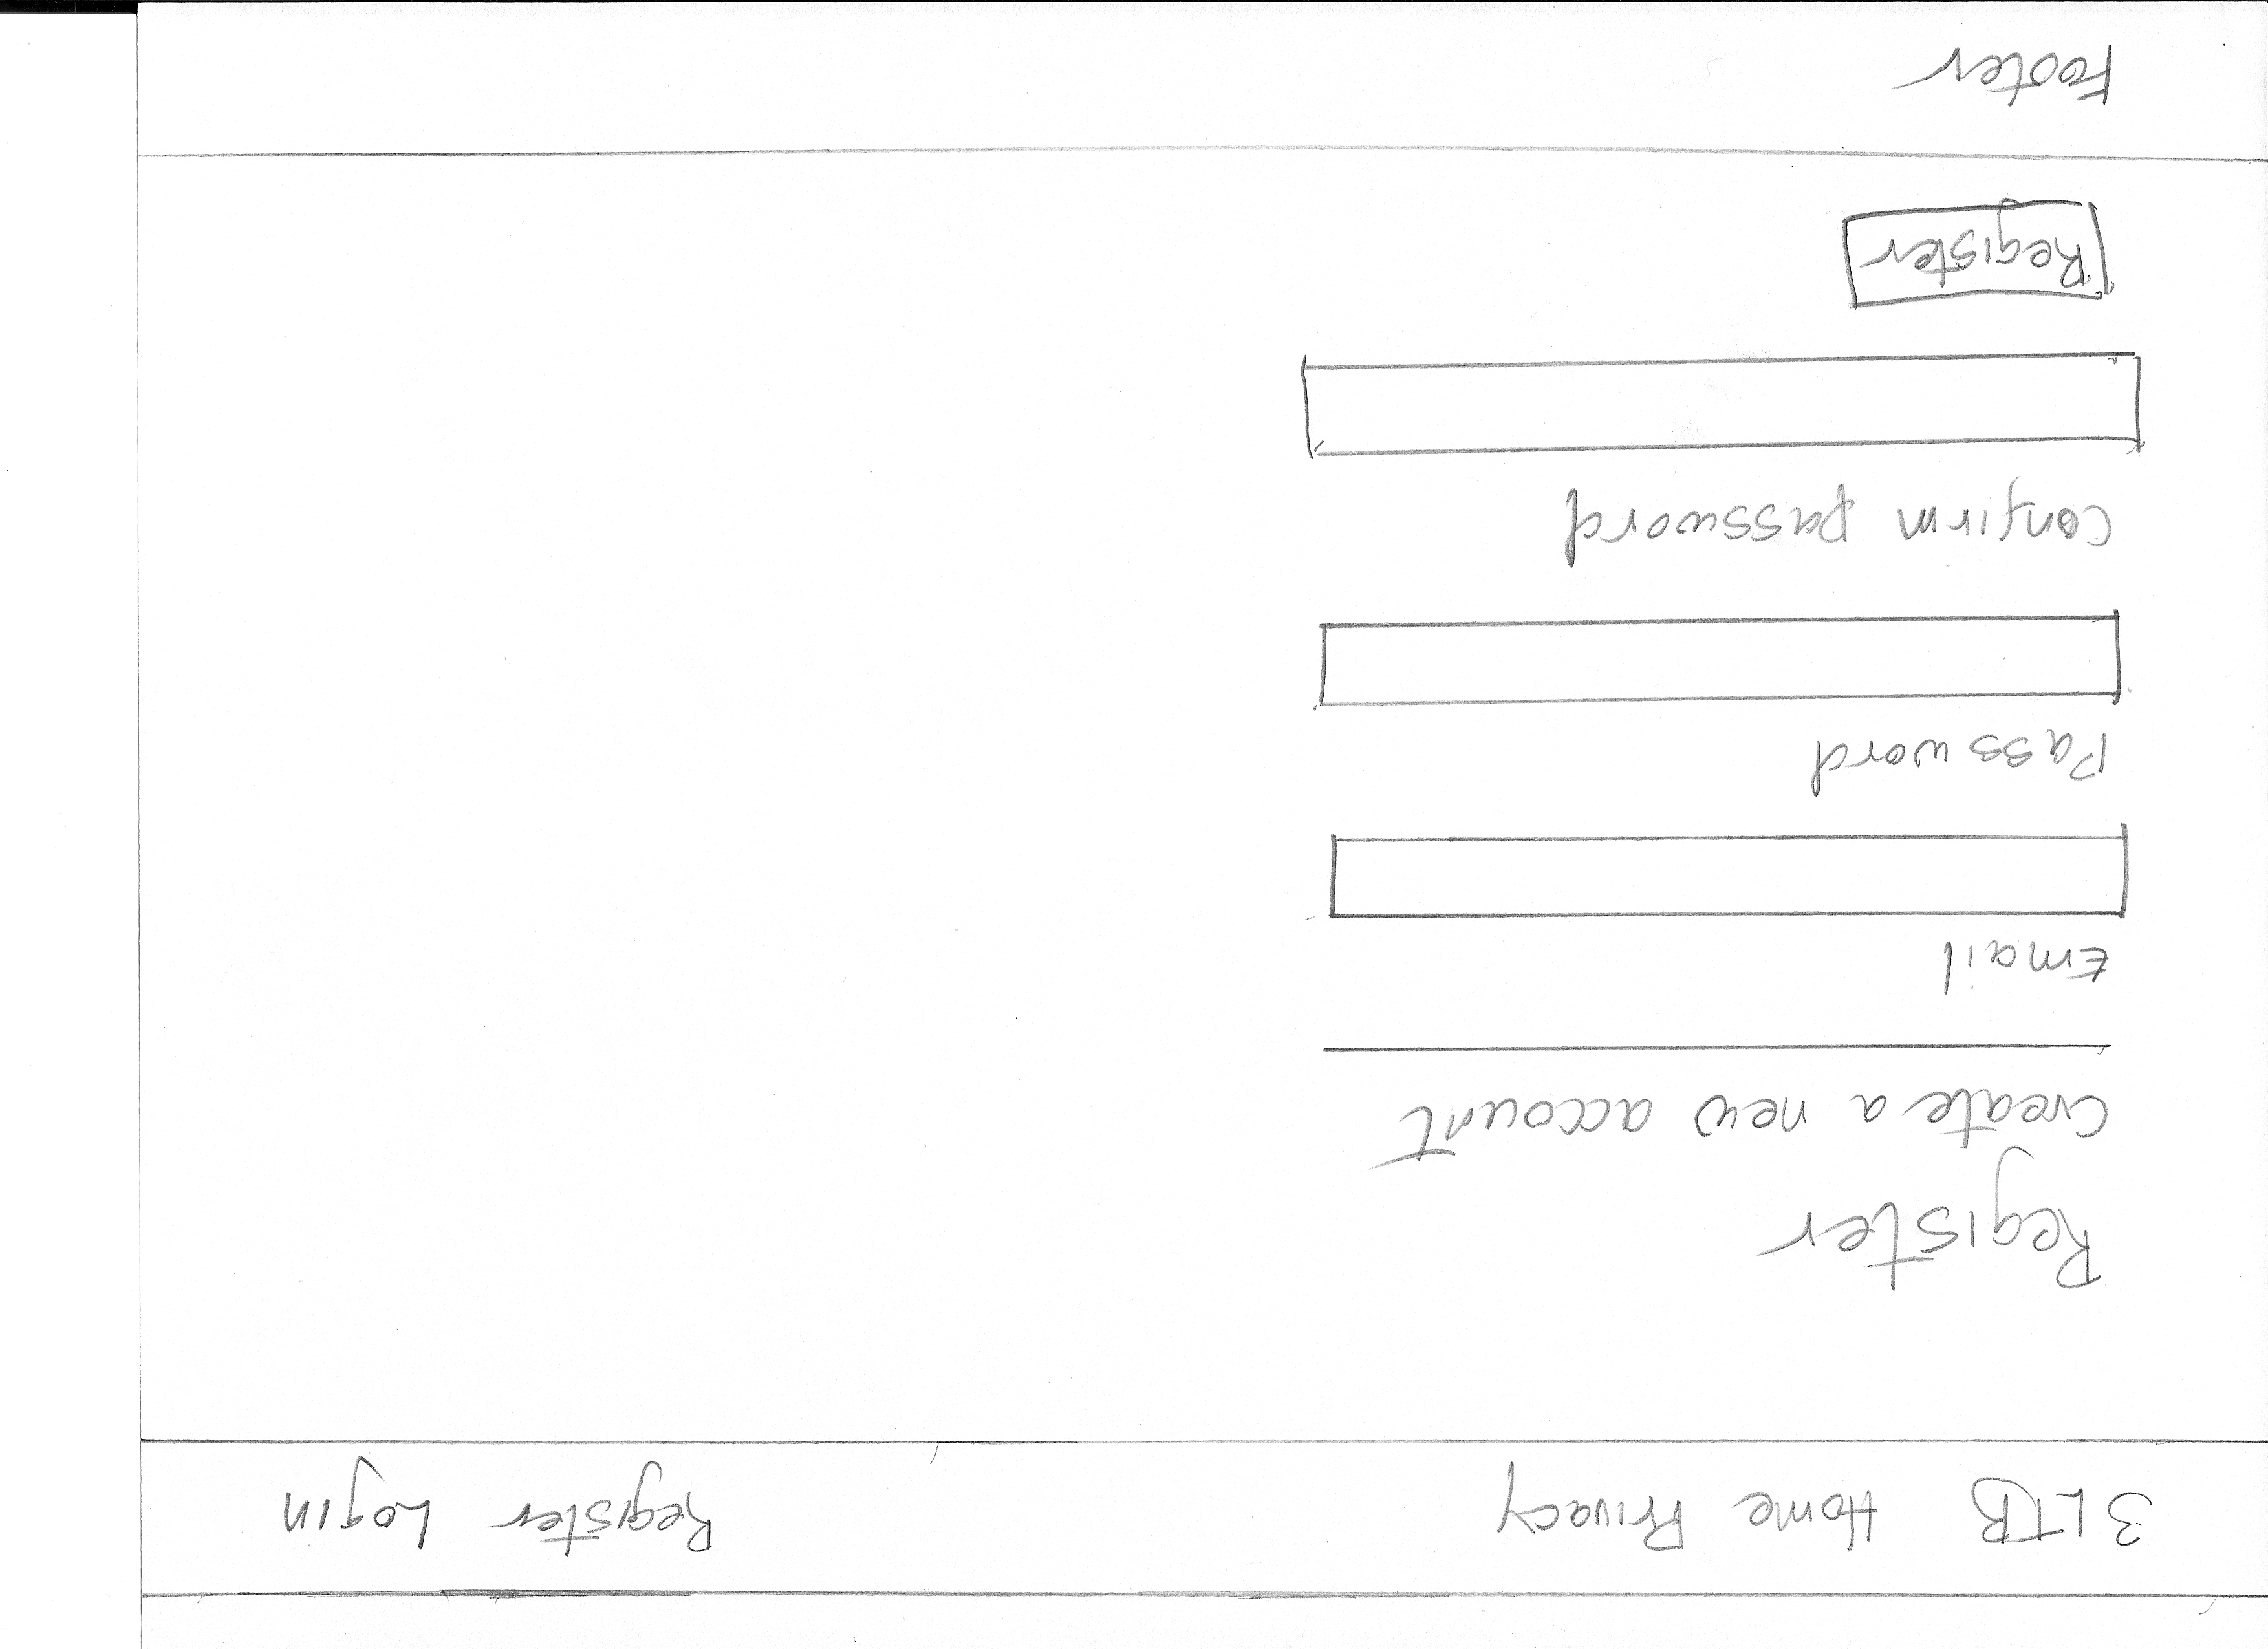 3LTB Home Privacy Register Login
Register
Create a new account
Email
Password
Confirm password
Register
Footer